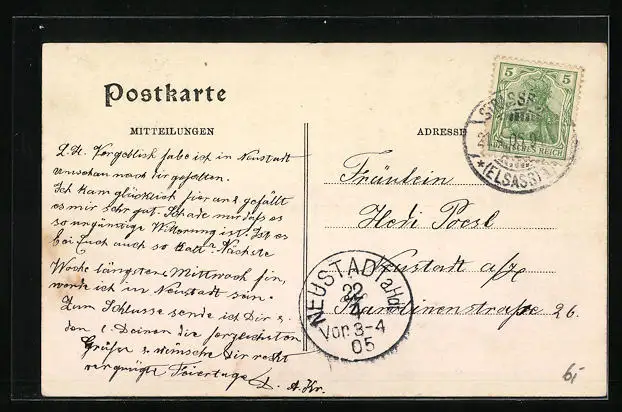 Postkarte
MITTEILUNGEN
ADRESSE
L. H. Vergeblich habe ich in Neustadt
Umschau nach Dir gehalten.
Ich kam glücklich hier an & gefällt
es mir sehr gut. Schade nur daß es
so ungünstige Witterung ist. Ist es
bei Euch auch so kalt? Nächste
Woche längstens Mittwoch
werde ich in Neustadt sein.
Zum Schlusse sende ich Dir &
den l. Deinen die herzlichsten
Grüße & wünsche Dir recht
vergnügte Feiertage
Fräulein
Hedi Poesl
Neustadt a/H
Karolinenstraße 26.
5 5
DEUTSCHES REICH
STRASSB
*(ELSASS)
NEUSTADT a.Hdt
22
4
Vor. 3-4
05
6,-